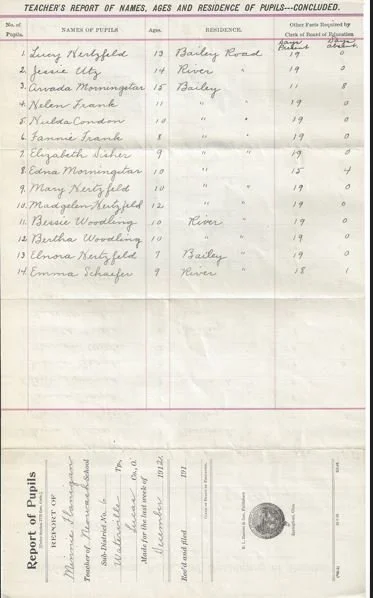 TEACHER'S REPORT OF NAMES, AGES AND RESIDENCE OF PUPILS—CONCLUDED.
No. of Pupils. NAMES OF PUPILS Ages. RESIDENCE. Other Facts Required by Clerk of Board of Education
Days Present Days absent.
1. Lucy Hertzfeld 13 Bailey Road 19 0
2. Jessie Utz 14 River " 19 0
3. Arvada Morningstar 15 Bailey 11 8
4. Helen Frank 11 " " 19 0
5. Hulda Condon 10 " " 19 0
6. Fannie Frank 8 " " 19 0
7. Elizabeth Fisher 9 " " 19 0
8. Edna Morningstar 10 " " 15 4
9. Mary Hertzfeld 10 " " 19 0
10. Madgelen Hertzfeld 12 " " 19 0
11. Bessie Woodling 10 River " 19 0
12. Bertha Woodling 10 " " 19 0
13. Elnora Hertzfeld 7 Bailey " 19 0
14. Emma Schaefer 9 River " 18 1
Report of Pupils
REPORT OF
Minnie Flanigan
Teacher of Neowash School
Sub-District No. 6
Waterville Tp.,
Lucas Co., O.
Made for the last week of
December 1912.
Rec'd and filed 191